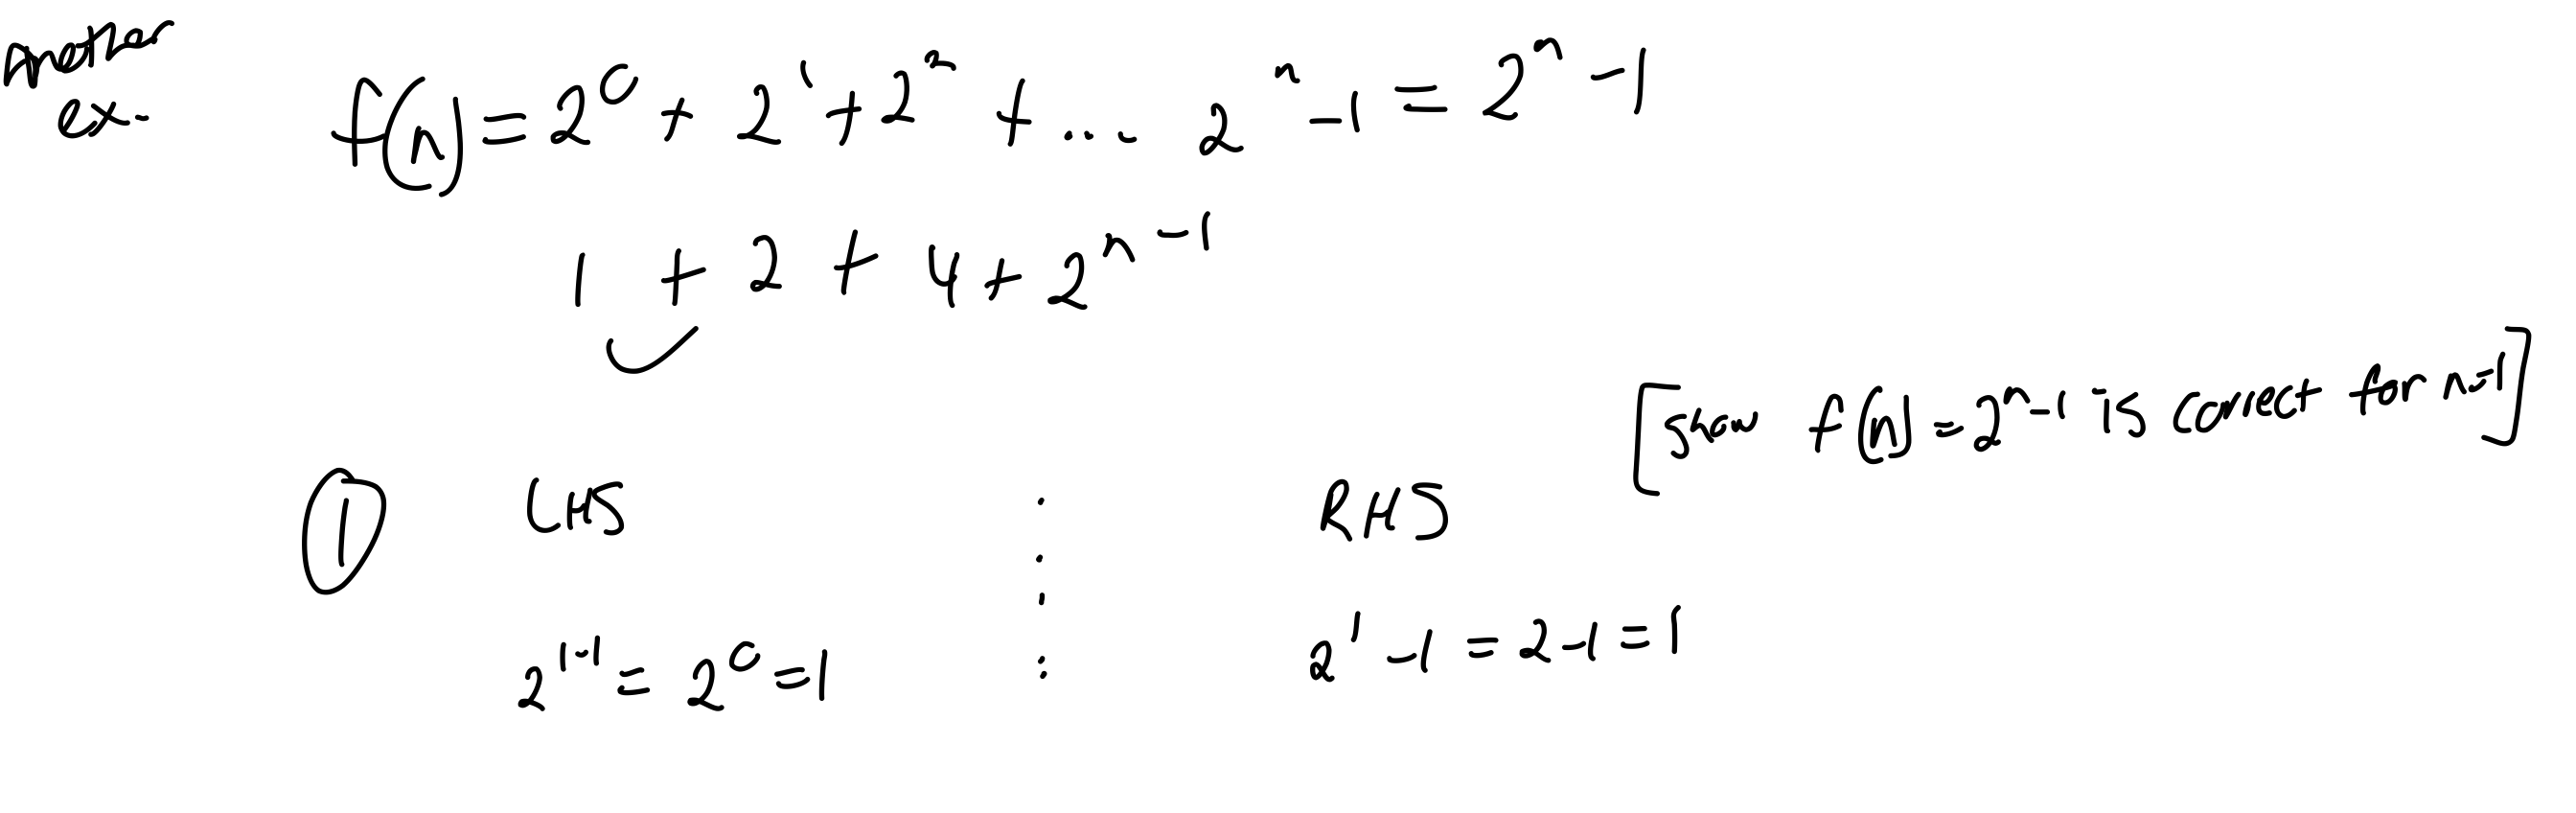 Another
ex.
f(n) = 2⁰ + 2¹ + 2² + ... 2ⁿ - 1 = 2ⁿ - 1
1 + 2 + 4 + 2ⁿ⁻¹
[show f(n) = 2ⁿ - 1 is correct for n=1]
① LHS : RHS
2¹⁻¹ = 2⁰ = 1 : 2¹ - 1 = 2 - 1 = 1